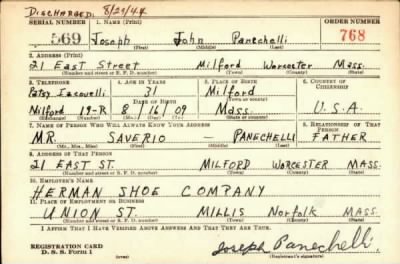 DISCHARGED: 8/29/44
SERIAL NUMBER 1. NAME (Print) ORDER NUMBER
569 Joseph John Panechelli 768
(First) (Middle) (Last)
2. ADDRESS (Print)
21 East Street Milford Worcester Mass.
(Number and street or R. F. D. number) (Town) (County) (State)
3. TELEPHONE 4. AGE IN YEARS 5. PLACE OF BIRTH 6. COUNTRY OF CITIZENSHIP
Patsy Iacovelli 31 Milford
DATE OF BIRTH (Town or county)
Milford 19-R 8 16 09 Mass. U.S.A.
(Exchange) (No.) (Mo.) (Day) (Yr.) (State or country)
7. NAME OF PERSON WHO WILL ALWAYS KNOW YOUR ADDRESS 8. RELATIONSHIP OF THAT PERSON
MR. SAVERIO — PANECHELLI FATHER
(Mr., Mrs., Miss) (First) (Middle) (Last)
9. ADDRESS OF THAT PERSON
21 EAST ST. MILFORD WORCESTER MASS.
(Number and street or R. F. D. number) (Town) (County) (State)
10. EMPLOYER'S NAME
HERMAN SHOE COMPANY
11. PLACE OF EMPLOYMENT OR BUSINESS
UNION ST. MILLIS Norfolk MASS.
(Number and street or R. F. D. number) (Town) (County) (State)
I AFFIRM THAT I HAVE VERIFIED ABOVE ANSWERS AND THAT THEY ARE TRUE.
REGISTRATION CARD
D. S. S. Form 1
Joseph Panechelli
(Registrant's signature)